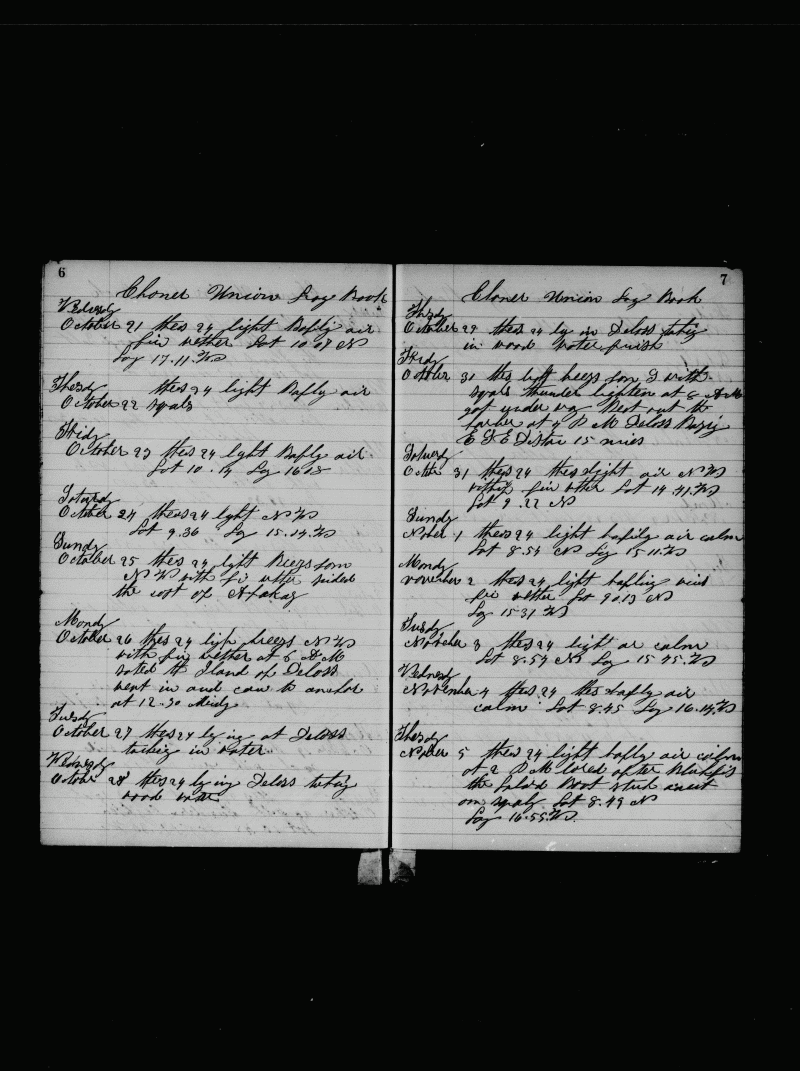 6
Choner Union Log Book
Wedensdy
October 21 thes 24 light Bafly air
fin wether Lot 10.07 N
Log 17.11.W
Thersdy
October 22 thes 24 light Bafly air
sqals
Fridy
October 23 thes 24 lght Bafly air
Lot 10.14 Log 16.18
Soturdy
October 24 thes 24 lght N W
Lot 9.36 Log 15.14.W
Sundy
October 25 thes 24 lght Breezs from
N W with fin wther
the cost of
Mondy
October 26 thes 24 breezs N W
with fin wether at 6 A M
the Iland of Deloss
went in and cam to anchor
at 12.30 Midy
Tusdy
October 27 thes 24 ly ing at Deloss
taking in water
Wedensdy
October 28 thes 24 ly ing Deloss taking
wood water
7
Choner Union Log Book
Thrsdy
October 29 thes 24 ly in Deloss takig
in wood water finish
Fridy
October 31 thes lght breezs from with
sqals thunder lighten at 8 A M
got under way Beat out the
harber at 4 P M Deloss Baring
E S E Distnc 15 miels
Soturdy
Octber 31 thes 24 thes light air N W
fin wther Lot 14.41.W
Lot 9.22 N
Sundy
Nober 1 thes 24 light bafily air calm
Lot 8.54 N Log 15.11.W
Mondy
november 2 thes 24 light bafling
fin wether Lot 9.13 N
Log 15.31 W
Tusdy
November 3 thes 24 light ar calm
Lot 8.54 N Log 15.45.W
Wedensdy
November 4 thes 24 thes bafly air
calm Lot 8.45 Log 16.14.W
Thersdy
Nober 5 thes 24 light bafly air calm
at 2 P M lored after Blakfis
the Boat
on Lot 8.49 N
Log 16.55.W